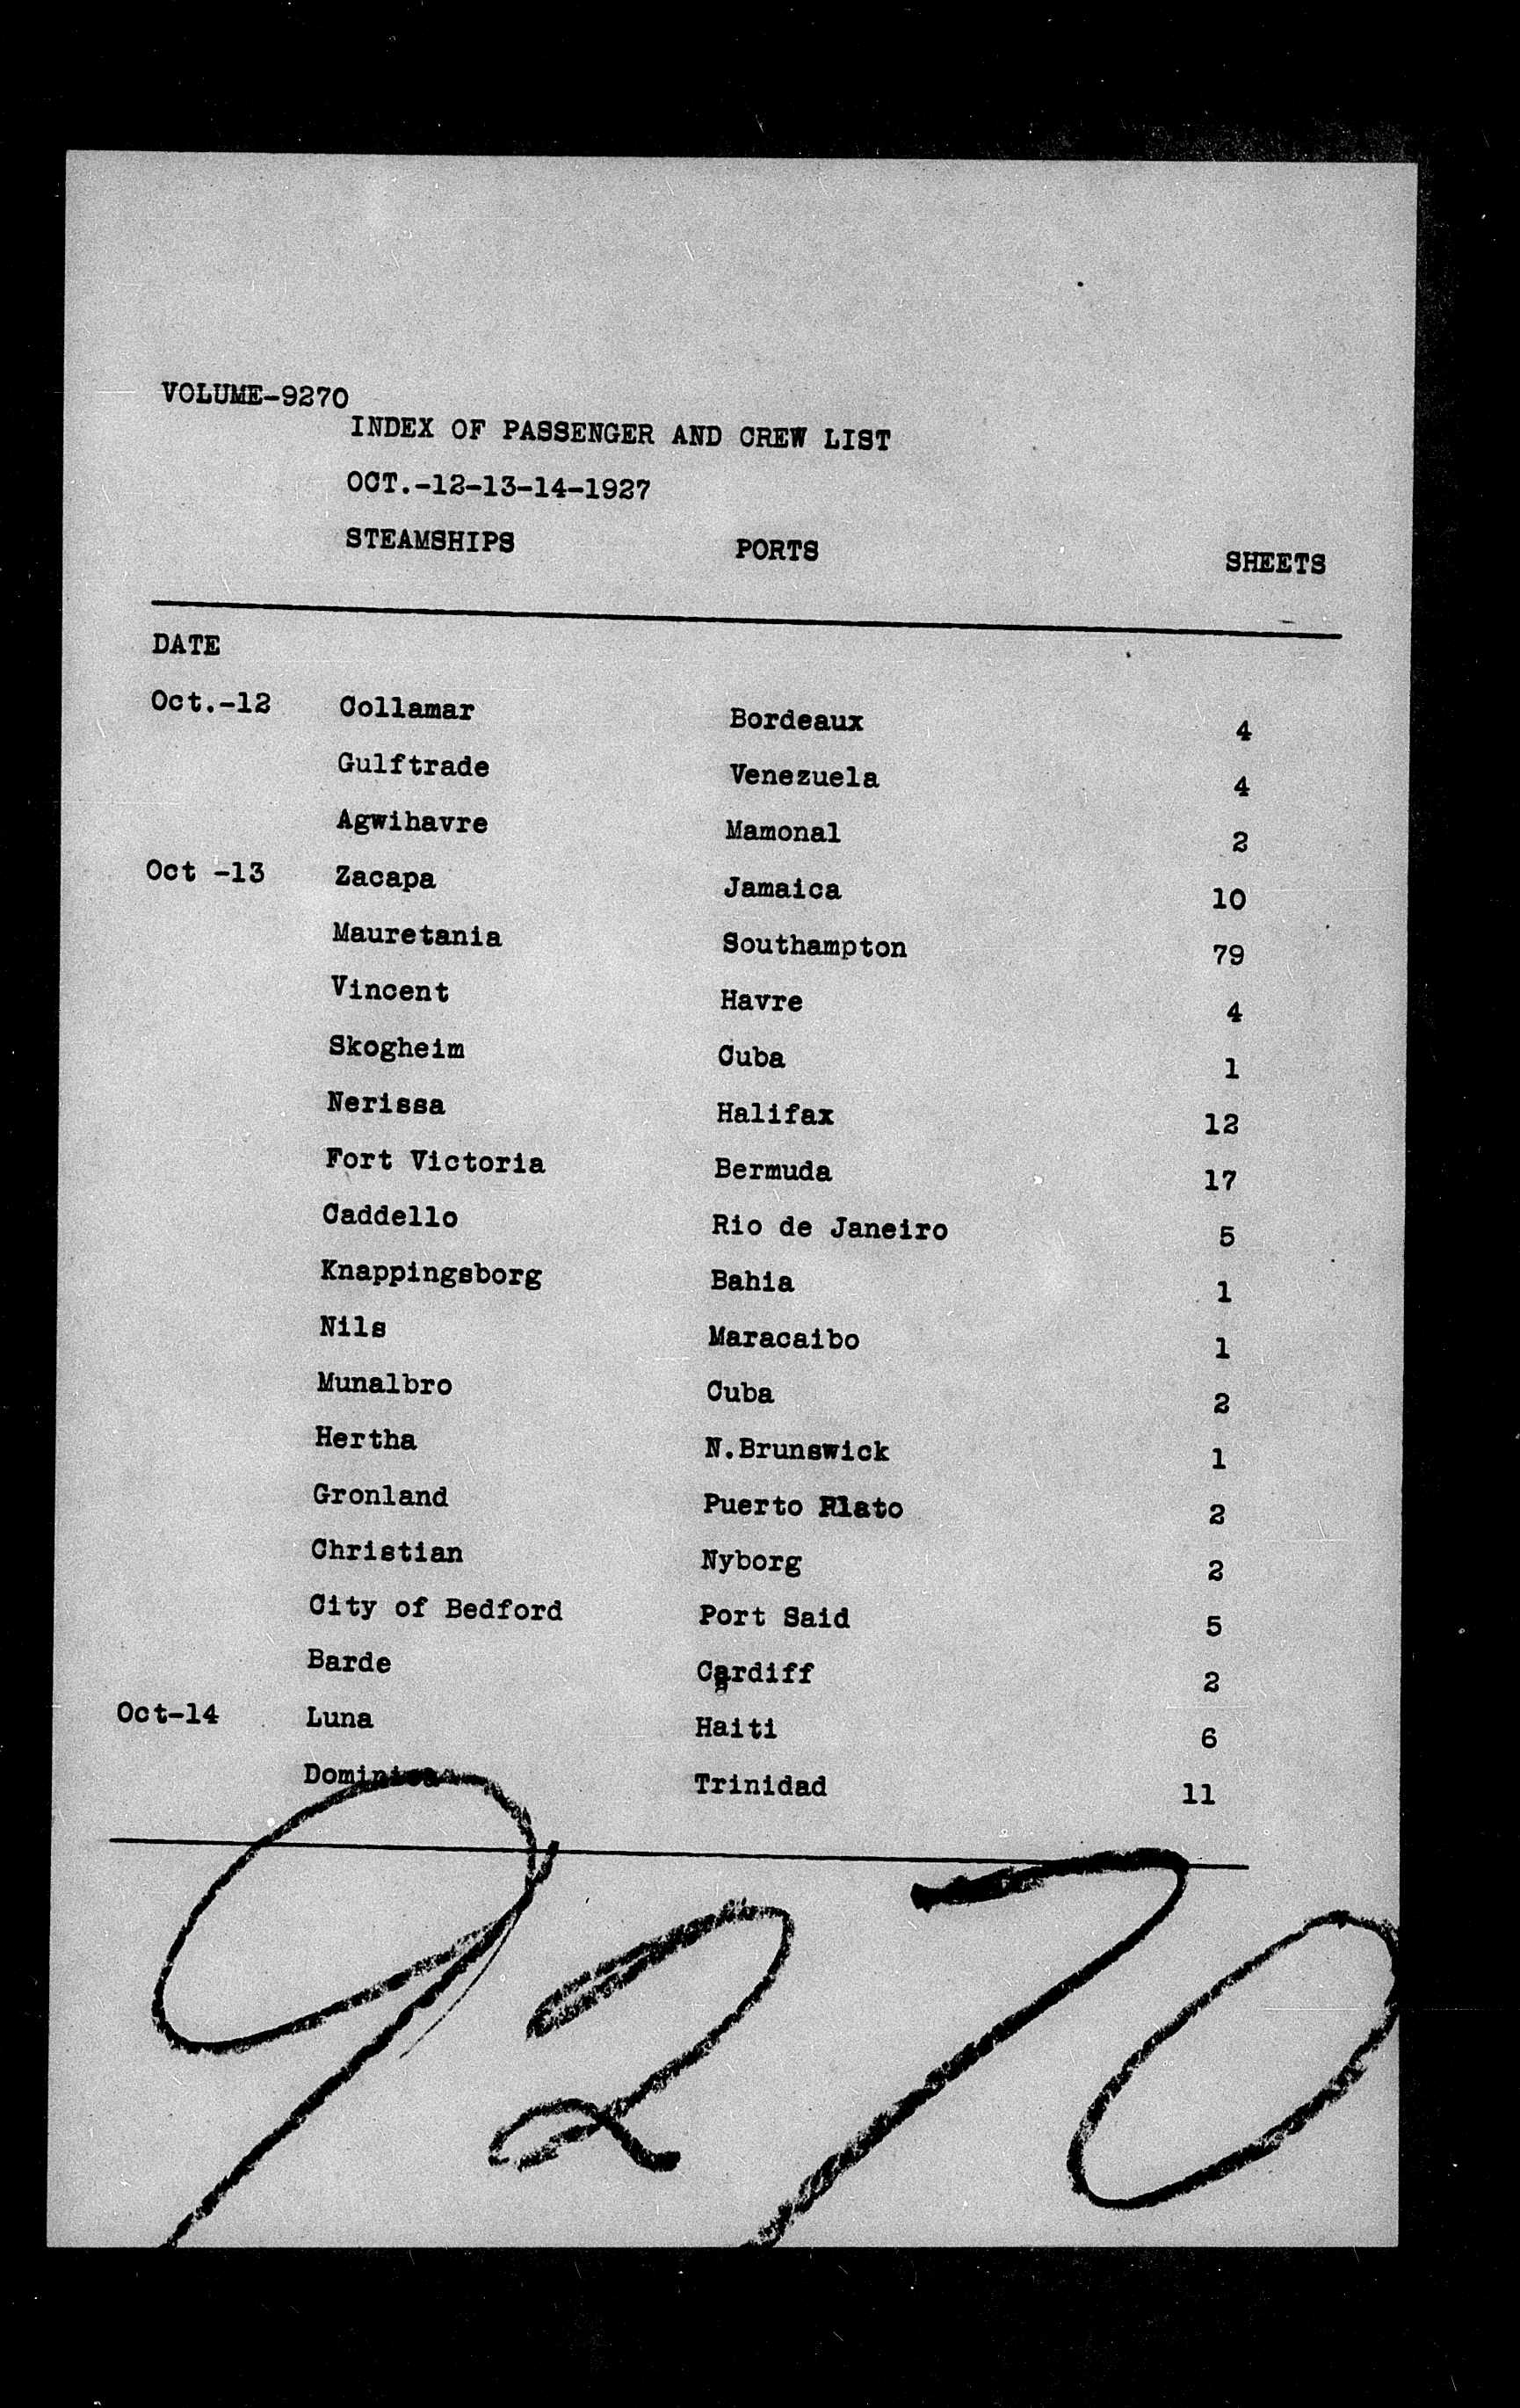 VOLUME-9270
INDEX OF PASSENGER AND CREW LIST
OCT.-12-13-14-1927
STEAMSHIPS PORTS SHEETS
DATE
Oct.-12 Collamar Bordeaux 4
Gulftrade Venezuela 4
Agwihavre Mamonal 2
Oct -13 Zacapa Jamaica 10
Mauretania Southampton 79
Vincent Havre 4
Skogheim Cuba 1
Nerissa Halifax 12
Fort Victoria Bermuda 17
Caddello Rio de Janeiro 5
Knappingsborg Bahia 1
Nils Maracaibo 1
Munalbro Cuba 2
Hertha N.Brunswick 1
Gronland Puerto Plato 2
Christian Nyborg 2
City of Bedford Port Said 5
Barde Cardiff 2
Oct-14 Luna Haiti 6
Dominica Trinidad 11
9270